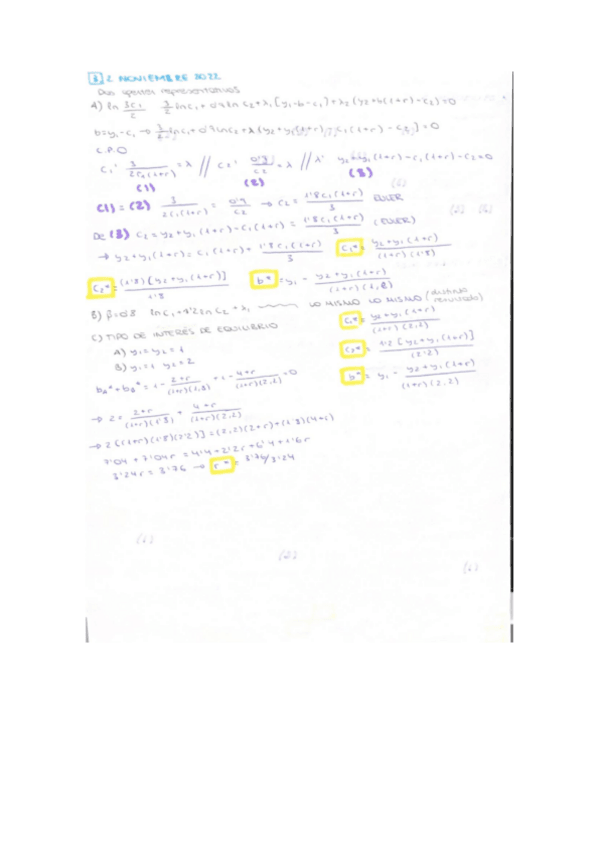 3 2 NOVIEMBRE 2022
Dos agentes representativos
A) ln 3c₁/2 3/2 ln c₁ + 0'9 ln c₂ + λ₁ [y₁-b-c₁] + λ₂ (y₂+b(1+r)-c₂) = 0
b=y₁-c₁ → 3/2 ln c₁ + 0'9 ln c₂ + λ (y₂+y₁(1+r) - c₁(1+r) - c₂) = 0
C.P.O
c₁: 3/2c₁(1+r) = λ // c₂: 0'9/c₂ = λ // λ: y₂+y₁(1+r)-c₁(1+r)-c₂=0
(1) (2) (3)
(1) = (2) 3/2c₁(1+r) = 0'9/c₂ → c₂ = 1'8c₁(1+r)/3 EULER
De (3) c₂ = y₂+y₁(1+r)-c₁(1+r) = 1'8c₁(1+r)/3 (EULER)
→ y₂+y₁(1+r) = c₁(1+r) + 1'8c₁(1+r)/3 c₁* = y₂+y₁(1+r)/(1+r)(1'8)
c₂* = (1'8)[y₂+y₁(1+r)]/1'8 b* = y₁ - y₂+y₁(1+r)/(1+r)(1,8)
B) β=0'8 ln c₁ + 1'2 ln c₂ + λ₁ LO MISMO LO MISMO (distinto resultado)
c₁* = y₂+y₁(1+r)/(1+r)(2,2)
C) TIPO DE INTERÉS DE EQUILIBRIO
c₂* = 1'2 [y₂+y₁(1+r)]/(2'2)
A) y₁=y₂=1
B) y₁=1 y₂=2
b* = y₁ - y₂+y₁(1+r)/(1+r)(2,2)
→ 2 = 2+r/(1+r)(1'8) + 4+r/(1+r)(2,2)
→ 2[(1+r)(1'8)(2'2)] = (2,2)(2+r)+(1'8)(4+r)
7'04 + 7'04r = 4'4+2'2r+6'4+1'6r
3'24r = 3'76 → r* = 3'76/3'24